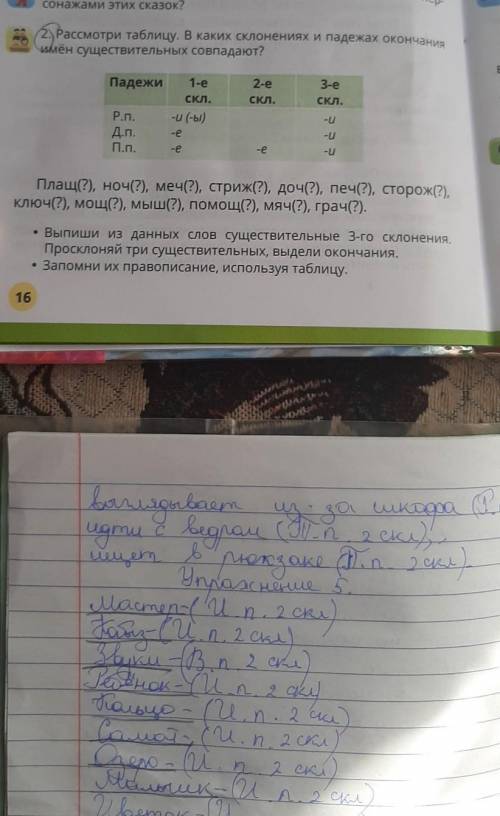 сонажами этих сказок?
2. Рассмотри таблицу. В каких склонениях и падежах окончания
имён существительных совпадают?
Падежи 1-е скл. 2-е скл. 3-е скл.
Р.п. -и (-ы) -и
Д.п. -е -и
П.п. -е -е -и
Плащ(?), ноч(?), меч(?), стриж(?), доч(?), печ(?), сторож(?),
ключ(?), мощ(?), мыш(?), помощ(?), мяч(?), грач(?).
• Выпиши из данных слов существительные 3-го склонения.
Просклоняй три существительных, выдели окончания.
• Запомни их правописание, используя таблицу.
16
выглядывает из-за шкафа (Р.
идти с ведром (Т.п. 2 скл),
ищет в рюкзаке (П.п. 2 скл).
Упражнение 5.
Мастер-(И.п. 2 скл)
Кобыз-(И.п. 2 скл)
Звуки-(В.п 2 скл)
Ребёнок-(И.п. 2 скл)
Кольцо-(И.п. 2 скл)
Самолт-(И.п. 2 скл)
Озеро-(И.п. 2 скл)
Мальчик-(И.п. 2 скл)
Цветок-(И